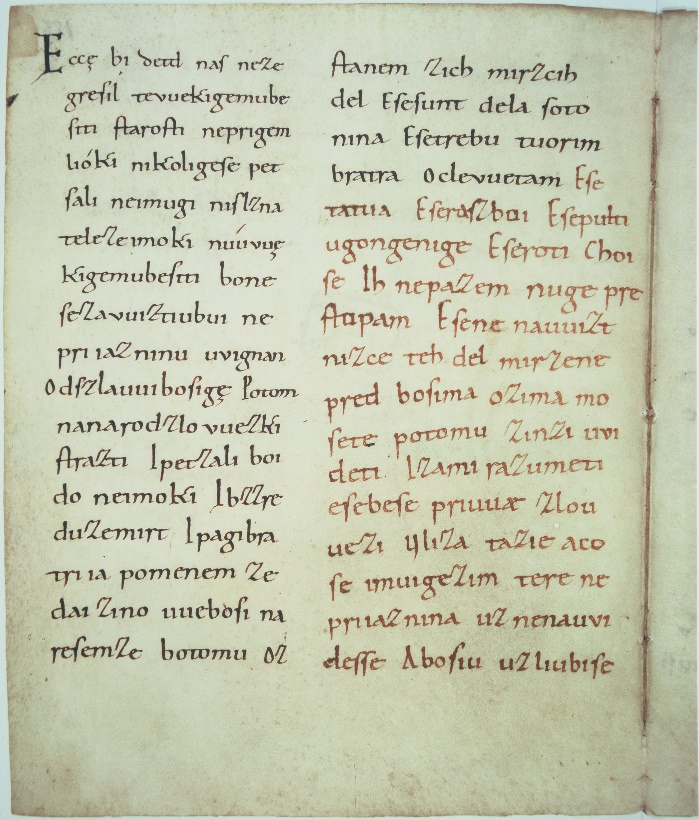 Eccę bi detd naſ neze
greſil tevuekigemube
ſiti ſtaroſti neprigem
lióki nikoligeſe pet
ſali neimugi niſlzna
teleZeimoki núvvvę
kigemubeſiti bone
ſeZavuiztiubui ne
pri iaZninu uvignan
OdſZlauuiboſigę Potom
nanarodZlovueZki
ſtraZti IpetZali boi
do neimoki IbZZre
duZemirt Ipagibra
tri ia pomenem Ze
dai Zino uuebóſi na
reſemZe botomu oZ
ſtanem Zich mirZcih
del Eſeſunt dela ſoto
nina Eſetrebu tuorim
bratra Oclevuetam Eſe
tatua EſeraZboi Eſepulti
ugongenige Eſeroti Choi
ſe Ih nepaZem nuge pre
ſtupam Eſene nauuiZt
niZce teh del mirZene
pred boſima oZima mo
ſete potomu ZinZi uvi
deti IZami raZumeti
eſebeſe priuuæ Zlou
ueZi UliZa taZie aco
ſe imuigeZim tere ne
priiaZnina uZ nenauvi
deſſe Aboſiu uZliubiſe